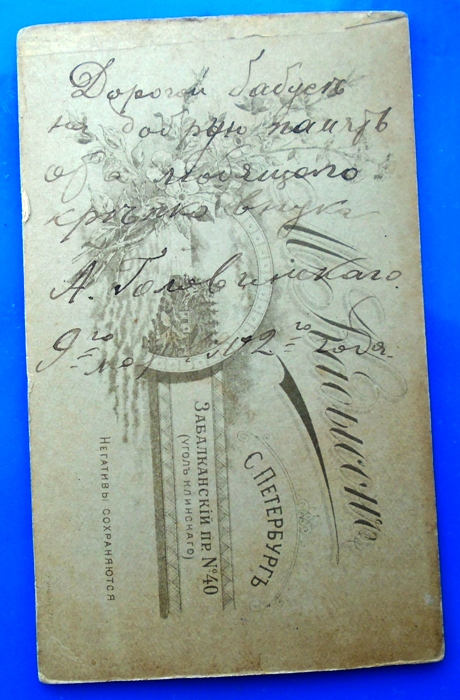 Дорогой бабусѣ
на добрую память
отъ любящаго
крѣпко внука
А. Головинскаго.
9го мар 1912го года.
С. ПЕТЕРБУРГЪ
ЗАБАЛКАНСКІЙ ПР. № 40
(УГОЛЪ КЛИНСКАГО)
НЕГАТИВЫ СОХРАНЯЮТСЯ